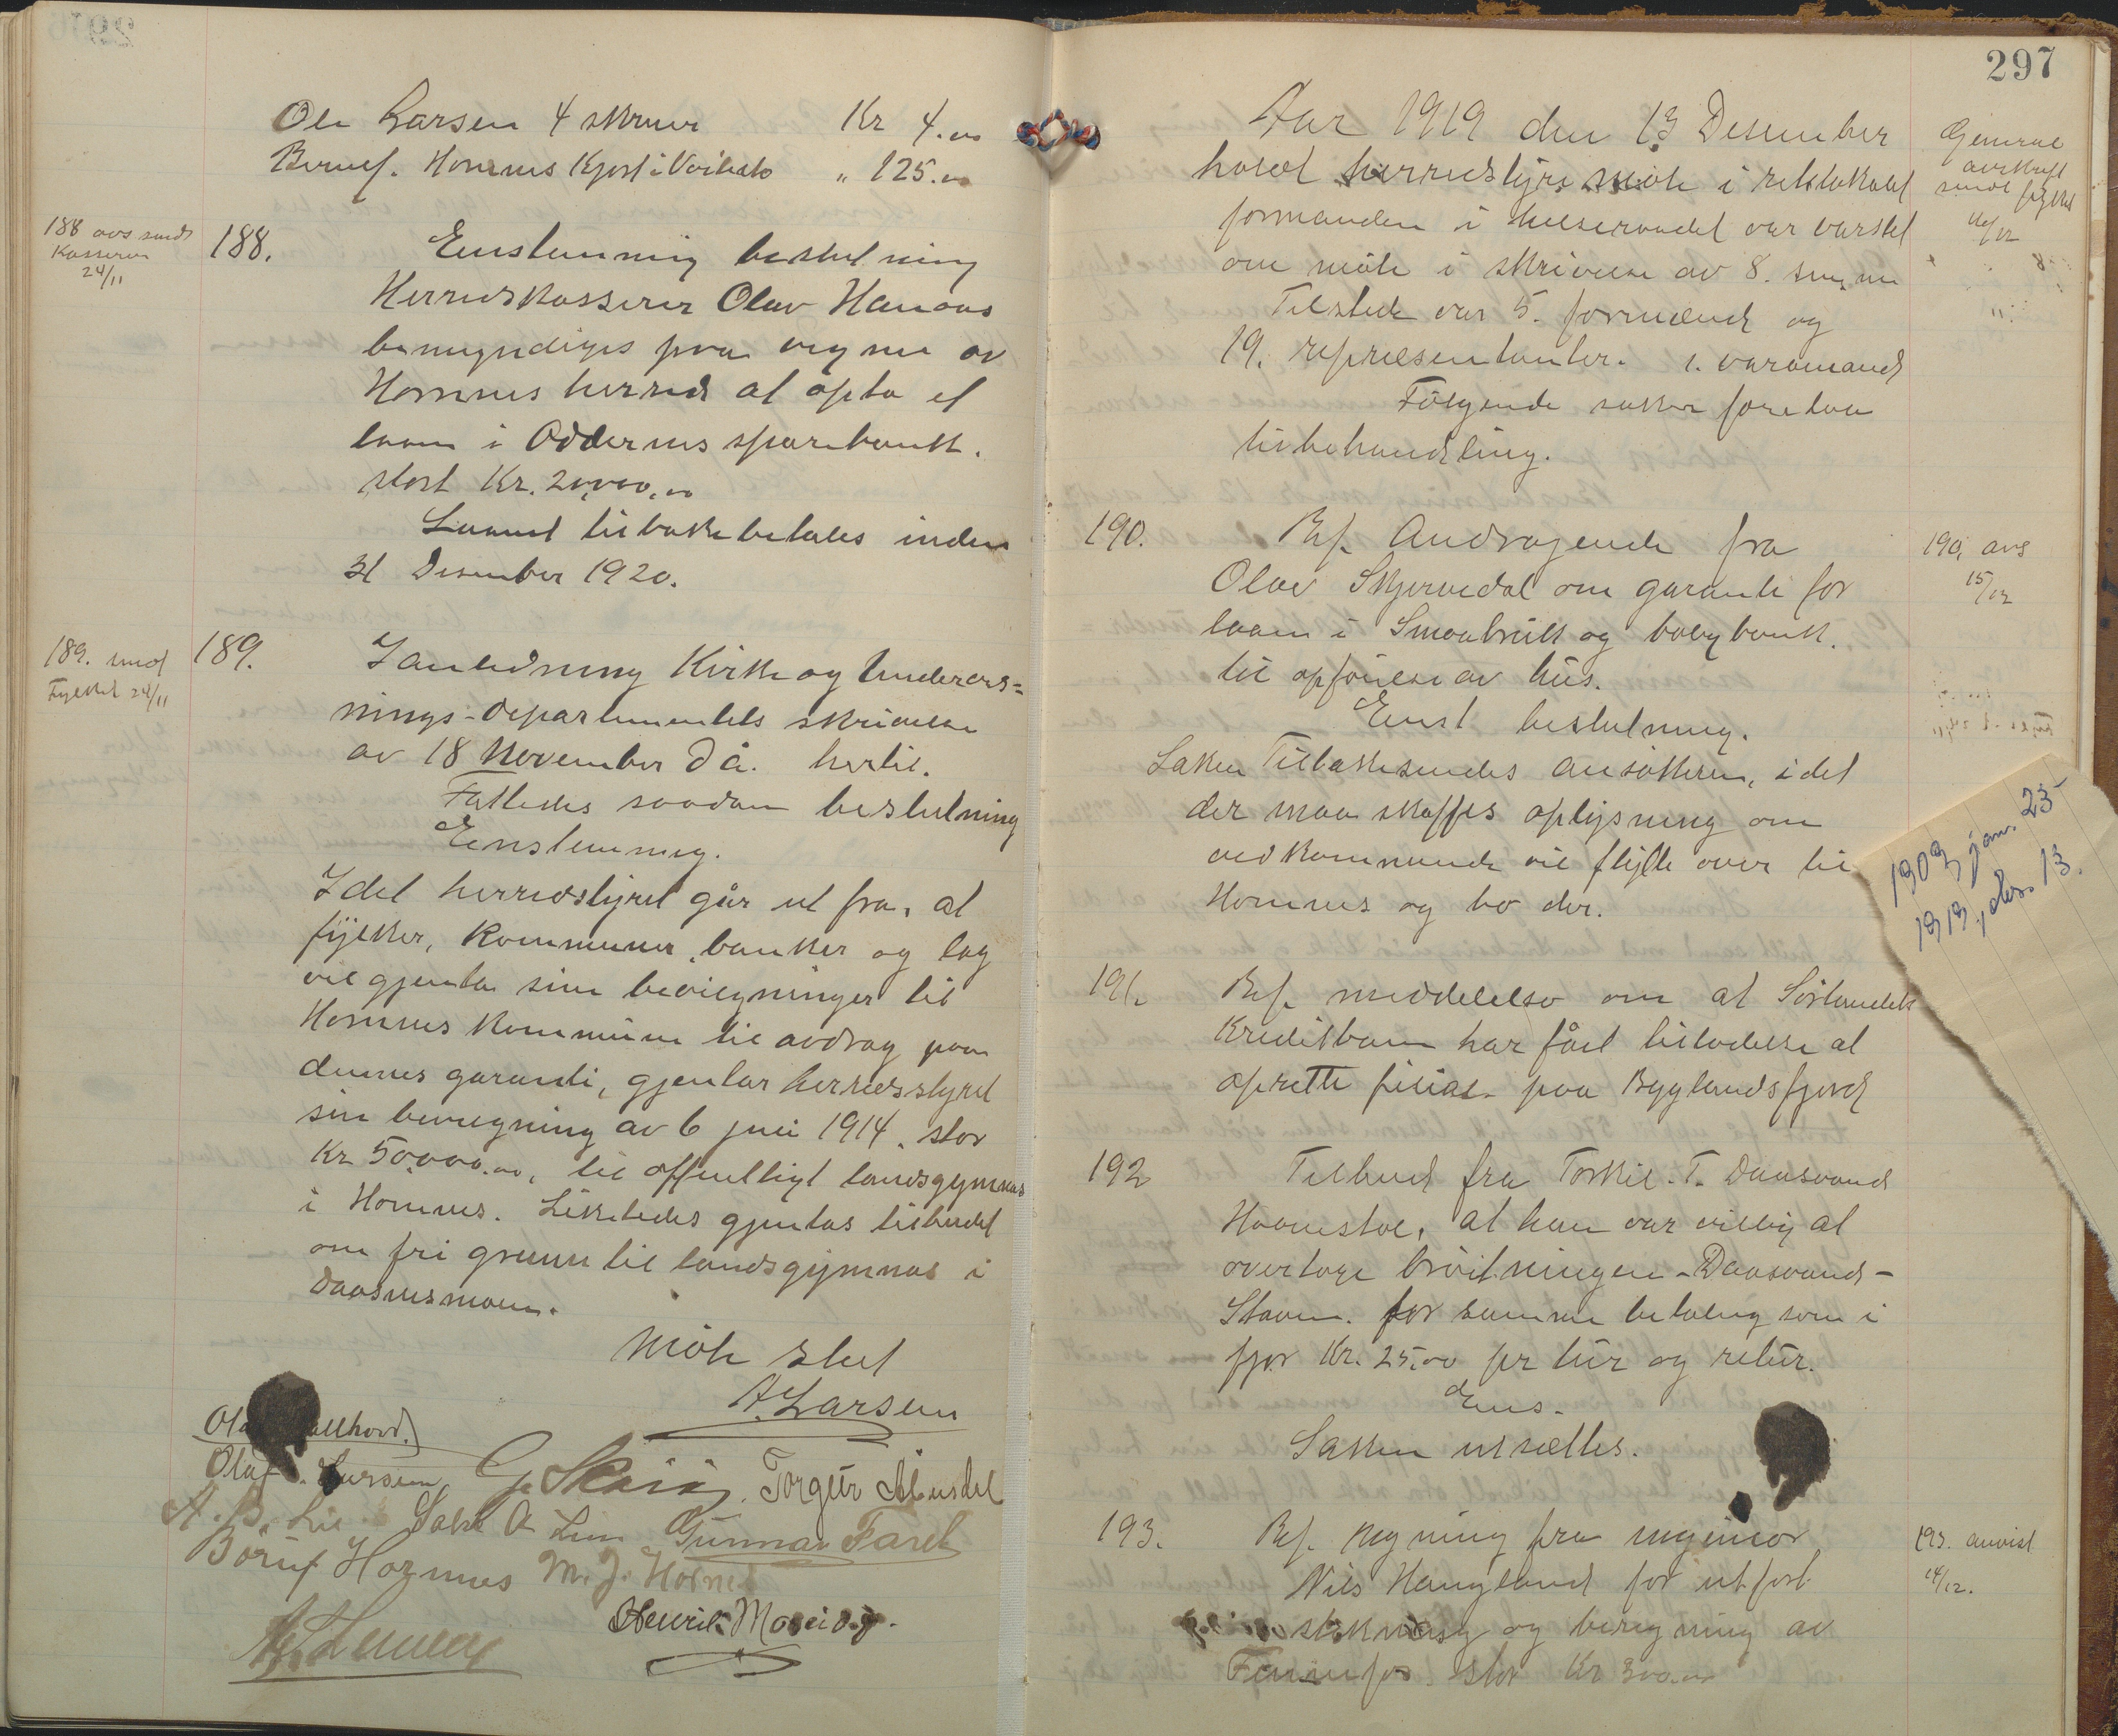 Ole Larsen 4 skruer Kr 4.00
Bernef. Hornnes Kjost i Veikasto " 125.00
188 avs sendt
Kasseren
24/11
188. Enstemmig beslutning
Herredskasserer Olav Hanaas
bemyndiges paa vegne av
Hornnes herred at opta et
laan i Oddernes sparebank.
stort Kr. 20,000,00
Laanet tilbakebetales inden
31 Desember 1920.
189. send
Fylket 24/11
189. I anledning Kirke og Undervis=
nings-departementets skrivelse
av 18 November d å. hertil.
Fattedes saadan beslutning
Enstemmig.
Idet herredstyret går ut fra, at
fylker, kommuner, banker og lag
vil gjenta sine bevilgninger til
Hornnes kommune til avdrag paa
dennes garanti, gjentar herredsstyret
sin bevilgning av 6 juli 1914. stor
Kr 50,000.00, til offentligt landsgymnas
i Hornnes. Likeledes gjentas tilbudet
om fri grunn til landsgymnas i
Daasnesmoen.
Møte slut
A. Larsen
Olaf G. Skeie Torgeir Åbusdal
Olaf Larsen
A. B. Lie Salve O Lien Gunnar Fareth
Børuf Hornnes M. J. Hornnes
Henrik Moseid
297
Aar 1919 den 13 Desember
holdt herredstyre møte i rektokalet
formanden i helseraadet var varslet
om møte i skrivelse av 8. s.m.
Tilstede var 5. formænd og
19. repræsentanter. 1. varamand
Følgende saker foretaa
til behandling.
General
avskrift
sendt fylket
16/12
190. Ref. Andragende fra
Olav Skjervedal om garanti for
laan i Smaabruk og boligbank.
til opførelse av hus.
Enst beslutning.
Saken Tilbakesendes ansøkeren, idet
der maa skaffes oplysning om
vedkommende vil flytte over til
Hornnes og bo der.
190, avs
15/12
1909 jan. 23
1919, des. 13.
191. Ref. meddelelse om at Sørlandets
Kreditbank har fåt tilladelse at
oprette filial paa Byglandsfjord
192 Tilbud fra Torkil. T. Daasvand
Haanestøl, at han var villig at
overtage brøitningen - Daasvand -
Staven. for samme betaling som i
fjor Kr. 25,00 pr tur og retur.
Ens.
Saken utsættes.
193. Ref. regning fra ingeniør
Nils Haugland for utført
stikning og beregning av
Fennefos stor Kr 300.00
193. anvist
14/12.